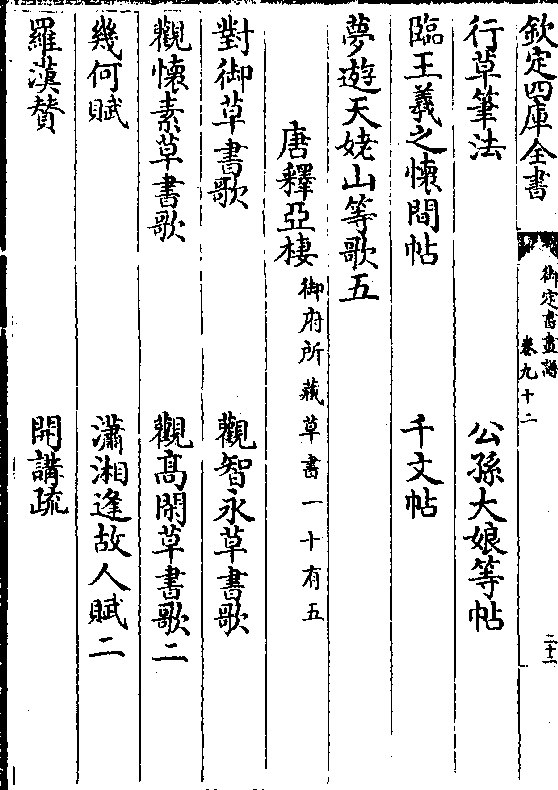 欽定四庫全書
御定書畫譜
卷九十二
二十二
行草筆法 公孫大娘等帖
臨王羲之懷間帖 千文帖
夢遊天姥山等歌五
唐釋亞棲 御府所藏草書一十有五
對御草書歌 觀智永草書歌
觀懷素草書歌 觀高閑草書歌二
幾何賦 瀟湘逢故人賦二
羅漢贊 開講疏